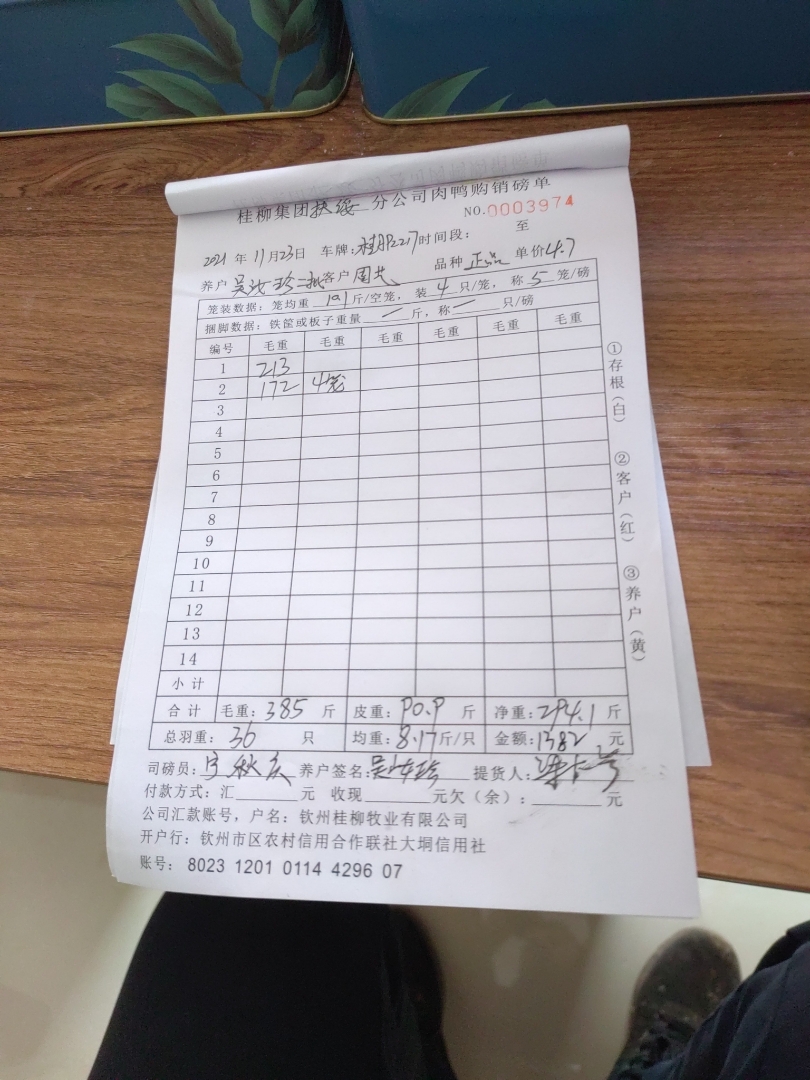 桂柳集团扶绥分公司肉鸭购销磅单
NO.0003974
2021年11月23日 车牌：桂 217 时间段： 至
养户 吴 珍二批 客户 周 品种 正品 单价4.7
笼装数据：笼均重 10.1 斤/空笼，装 4 只/笼，称 5 笼/磅
捆脚数据：铁筐或板子重量 — 斤，称 — 只/磅
编号 毛重 毛重 毛重 毛重 毛重 毛重
1 213
2 172 4笼
3
4
5
6
7
8
9
10
11
12
13
14
小计
合计 毛重：385 斤 皮重：90.9 斤 净重：294.1 斤
总羽重：36 只 均重：8.17斤/只 金额：1382 元
司磅员： 秋 养户签名：吴 珍 提货人：
付款方式：汇 元 收现 元欠（余）： 元
公司汇款账号，户名：钦州桂柳牧业有限公司
开户行：钦州市区农村信用合作联社大垌信用社
账号：8023 1201 0114 4296 07
①存根（白）
②客户（红）
③养户（黄）